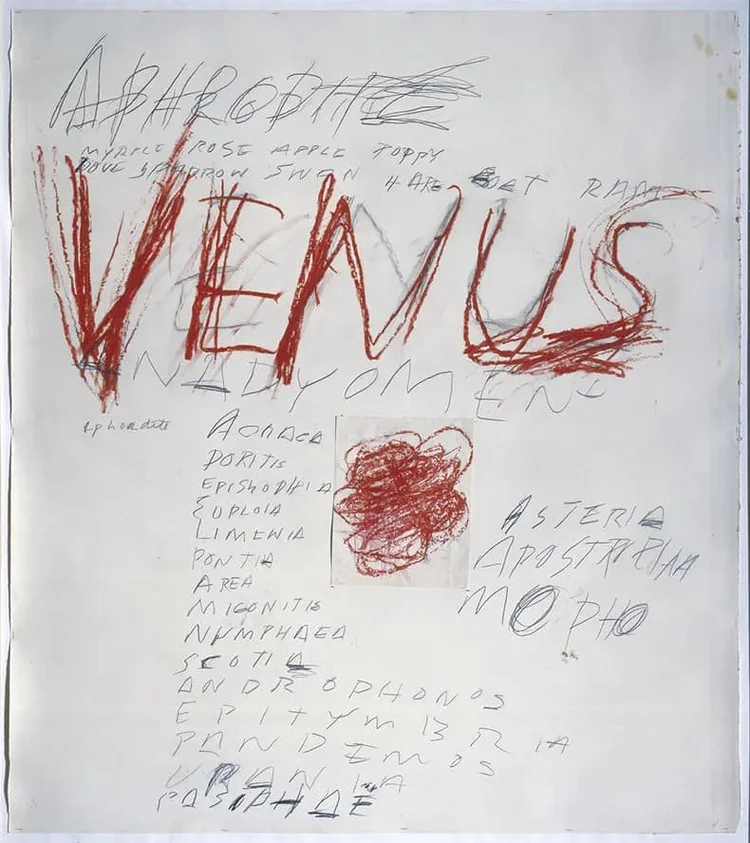 APHRODITE
MYRTLE ROSE APPLE POPPY
DOVE SPARROW SWAN HARE GOAT RAM
VENUS
ANADYOMENE
Aphrodite
DORITIS
EPISTRODHIA
EUPLOIA
LIMENIA
PONTIA
AREA
MIGONITIS
NUMPHAEA
SCOTIA
ANDROPHONOS
EPITYMBRIA
PANDEMOS
URANIA
PASIPHAE
ASTERIA
APOSTROPHIA
MOPHO